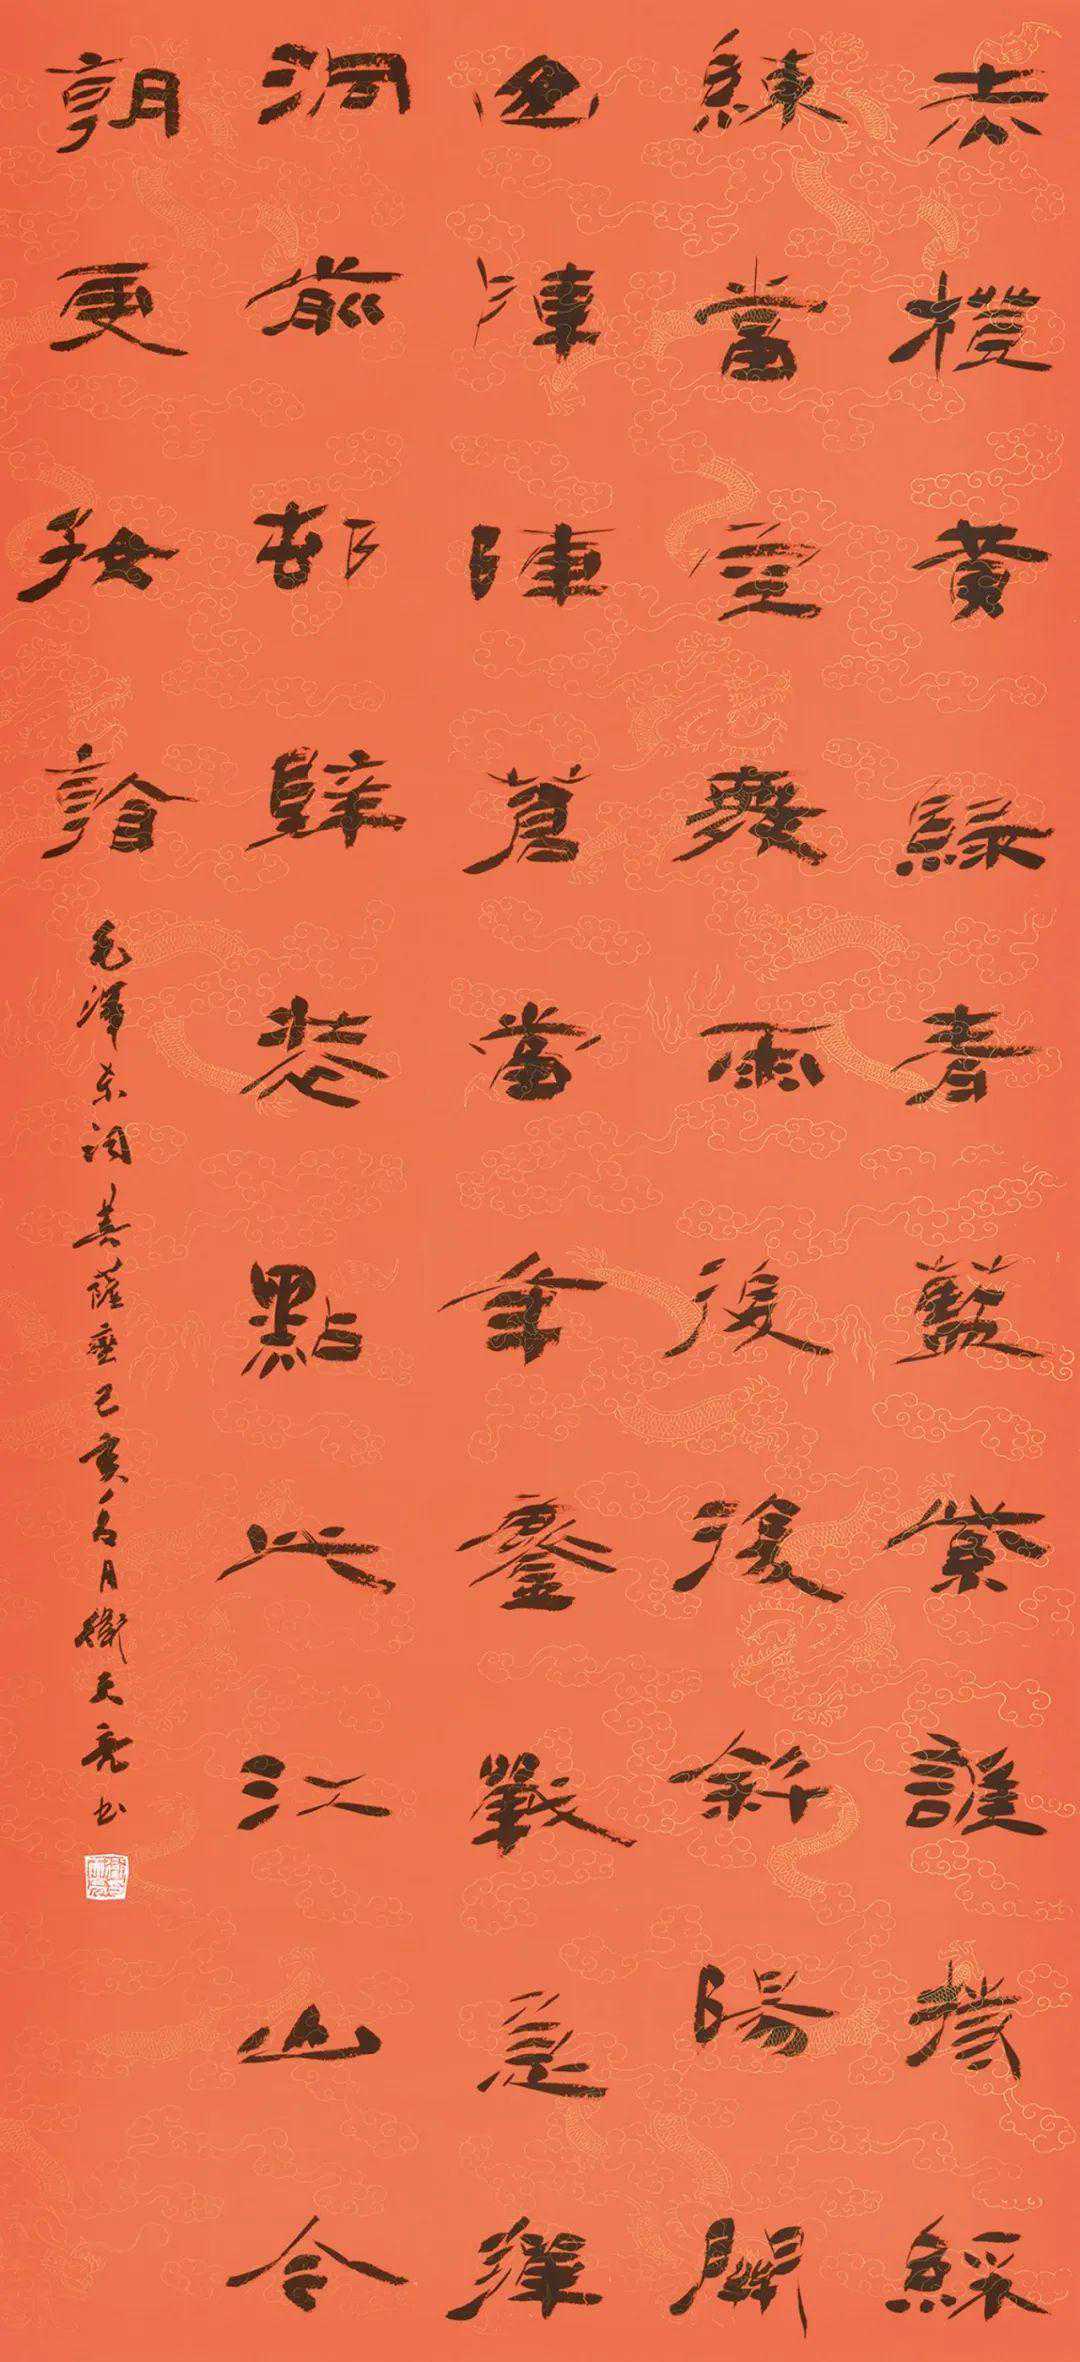 赤橙黃綠青藍紫誰持綵
練當空舞雨後復斜陽關
山陣陣蒼當年鏖戰急彈
洞前邨壁裝點此江山今
朝更好看
毛澤东詞菩薩蠻己亥月天亮书